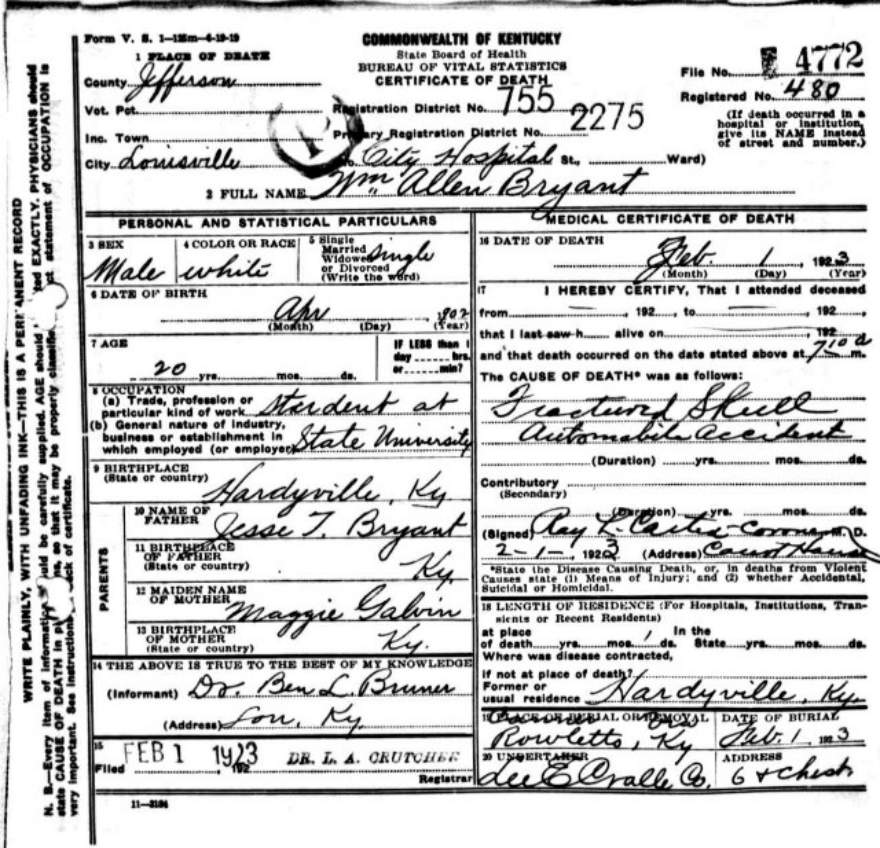 Form V. S. 1—125m—4-19-19
COMMONWEALTH OF KENTUCKY
State Board of Health
BUREAU OF VITAL STATISTICS
CERTIFICATE OF DEATH
File No. 4772
Registered No. 480
(If death occurred in a
hospital or institution,
give its NAME instead
of street and number.)
1 PLACE OF DEATH
County Jefferson
Vot. Pct.
Registration District No. 755
Inc. Town
Primary Registration District No. 2275
City Louisville
City Hospital St., Ward)
2 FULL NAME Wm Allen Bryant
PERSONAL AND STATISTICAL PARTICULARS
3 SEX
Male
4 COLOR OR RACE
white
5 Single
Married
Widowed
or Divorced
(Write the word)
single
6 DATE OF BIRTH
Apr , 1902
(Month) (Day) (Year)
7 AGE
20 yrs. mos. ds.
IF LESS than 1
day hrs.
or min?
8 OCCUPATION
(a) Trade, profession or
particular kind of work Student at
(b) General nature of industry,
business or establishment in
which employed (or employer) State University
9 BIRTHPLACE
(State or country)
Hardyville, Ky.
PARENTS
10 NAME OF
FATHER Jesse T. Bryant
11 BIRTHPLACE
OF FATHER
(State or country) Ky.
12 MAIDEN NAME
OF MOTHER Maggie Galvin
13 BIRTHPLACE
OF MOTHER
(State or country) Ky.
14 THE ABOVE IS TRUE TO THE BEST OF MY KNOWLEDGE
(Informant) Dr. Ben L. Bruner
(Address) Lou, Ky.
15
Filed FEB 1 1923, 192 DR. L. A. CRUTCHER
Registrar
11—3184
MEDICAL CERTIFICATE OF DEATH
16 DATE OF DEATH
Feb. 1, 1923
(Month) (Day) (Year)
17 I HEREBY CERTIFY, That I attended deceased
from , 192 , to , 192 ,
that I last saw h alive on , 192
and that death occurred on the date stated above at 7 10 a m.
The CAUSE OF DEATH* was as follows:
Fractured Skull
Automobile Accident
(Duration) yrs. mos. ds.
Contributory
(Secondary)
(Duration) yrs. mos. ds.
(Signed) Ray L. Coroner M. D.
2-1-, 1923 (Address) Court House
*State the Disease Causing Death, or, in deaths from Violent
Causes state (1) Means of Injury; and (2) whether Accidental,
Suicidal or Homicidal.
18 LENGTH OF RESIDENCE (For Hospitals, Institutions, Tran-
sients or Recent Residents)
at place In the
of death yrs. mos. ds. State yrs. mos. ds.
Where was disease contracted,
if not at place of death?
Former or
usual residence Hardyville, Ky.
19 PLACE OF BURIAL OR REMOVAL
Rowletts, Ky
DATE OF BURIAL
Feb. 1, 1923
20 UNDERTAKER
Lee E Cralle Co.
ADDRESS
6 & Chest
WRITE PLAINLY, WITH UNFADING INK—THIS IS A PERMANENT RECORD
N. B.—Every item of information should be carefully supplied. AGE should ted EXACTLY. PHYSICIANS should
state CAUSE OF DEATH in pl ms, so that it may be properly classified. ct statement of OCCUPATION is
very important. See instructions ck of certificate.